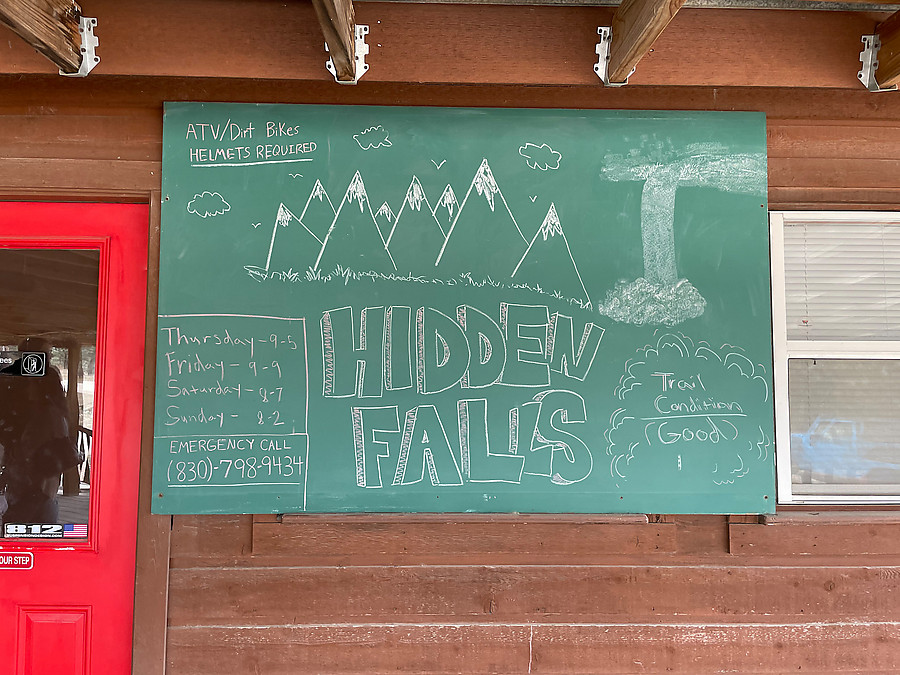 ATV/Dirt Bikes
HELMETS REQUIRED
Thursday - 9-5
Friday - 9-9
Saturday - 8-7
Sunday - 8-2
EMERGENCY CALL
(830)-798-9434
HIDDEN
FALLS
Trail
Condition
(Good)
812
OUR STEP